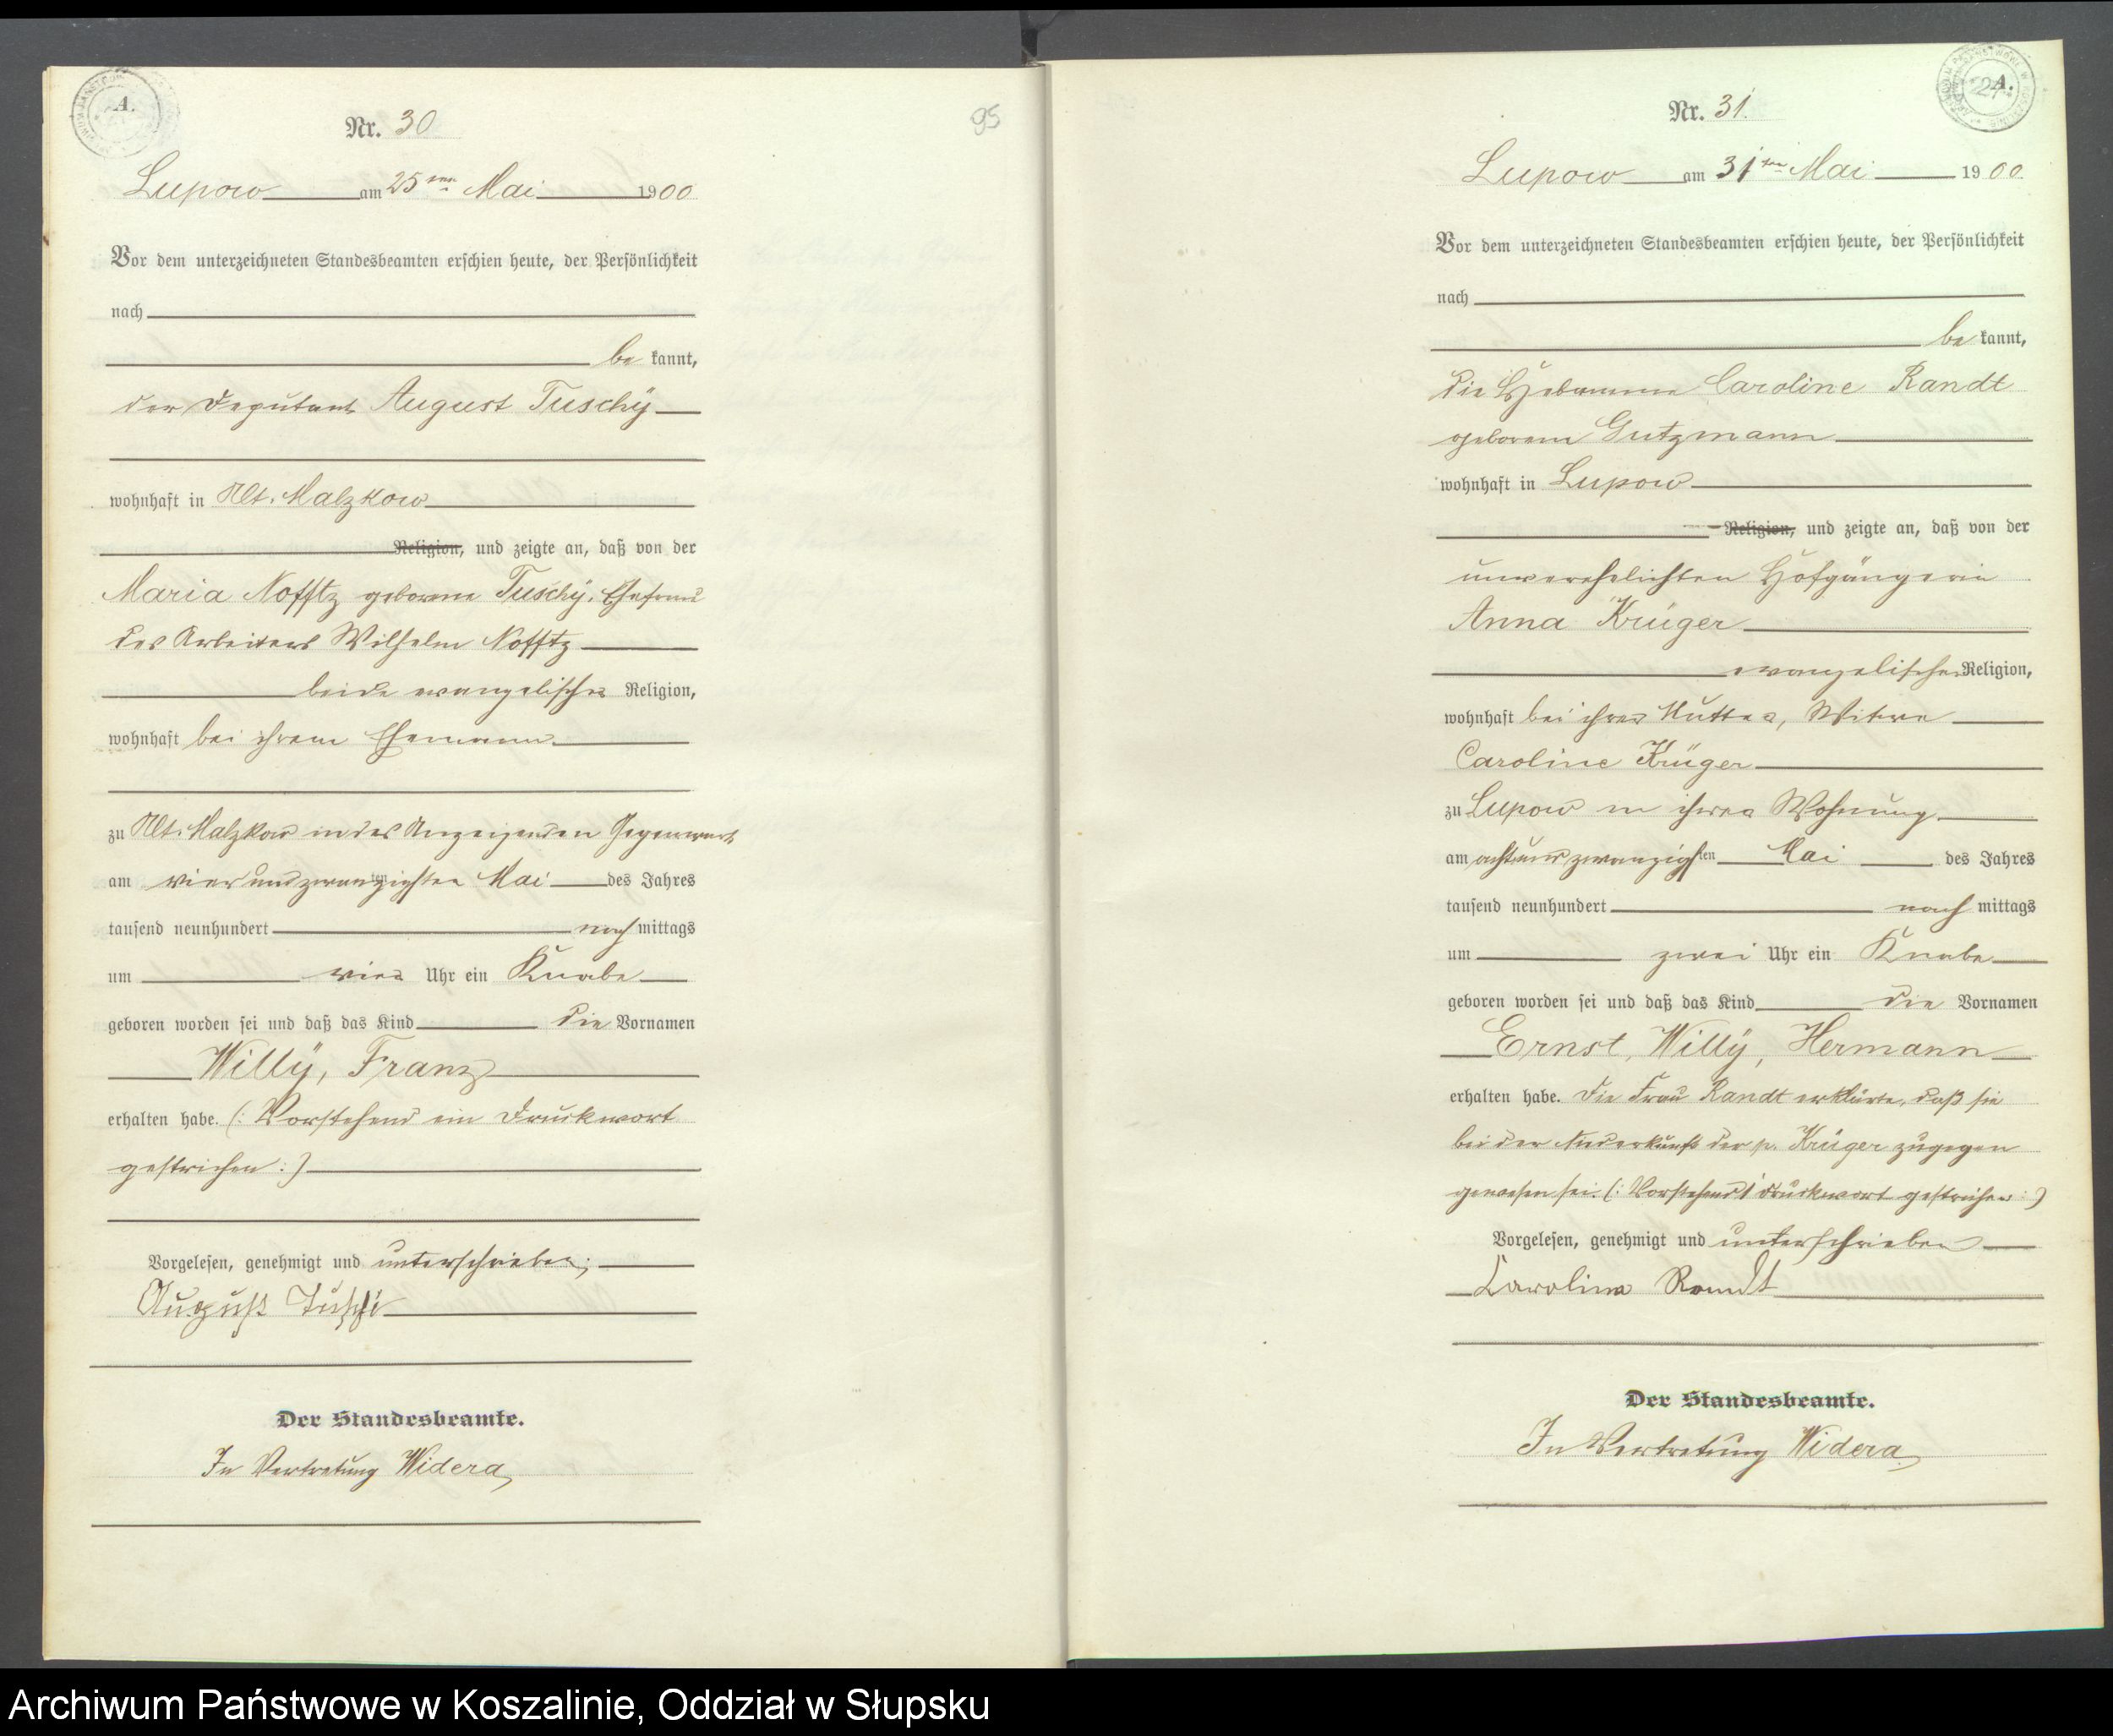 A.
Nr. 30
95
Lupow am 25ten Mai 1900
Vor dem unterzeichneten Standesbeamten erschien heute, der Persönlichkeit
nach
be kannt,
der Deputant August Tuschÿ
wohnhaft in Alt. Malzkow
Religion, und zeigte an, daß von der
Maria Nofftz geborene Tuschÿ, Ehefrau
des Arbeiters Wilhelm Nofftz
beide evangelischer Religion,
wohnhaft bei ihrem Ehemann
zu Alt. Malzkow in des Anzeigenden Gegenwart
am vierundzwanzigsten Mai des Jahres
tausend neunhundert nach mittags
um vier Uhr ein Knabe
geboren worden sei und daß das Kind die Vornamen
Willÿ, Franz
erhalten habe. (: Vorstehend ein Druckwort
gestrichen :)
Vorgelesen, genehmigt und unterschrieben;
August Tuschi
Der Standesbeamte.
In Vertretung Widera
A.
Nr. 31.
Lupow am 31ten Mai 1900.
Vor dem unterzeichneten Standesbeamten erschien heute, der Persönlichkeit
nach
be kannt,
die Hebamme Caroline Randt
geborene Gutzmann
wohnhaft in Lupow
Religion, und zeigte an, daß von der
unverehelichten Hofgängerin
Anna Krüger
evangelischer Religion,
wohnhaft bei ihrer Mutter, Witwe
Caroline Krüger
zu Lupow in ihrer Wohnung
am achtundzwanzigsten Mai des Jahres
tausend neunhundert nach mittags
um zwei Uhr ein Knabe
geboren worden sei und daß das Kind die Vornamen
Ernst, Willÿ, Hermann
erhalten habe. Die Frau Randt erklärte, daß sie
bei der Niederkunft der p. Krüger zugegen
gewesen sei. (: Vorstehend 1 Druckwort gestrichen :)
Vorgelesen, genehmigt und unterschrieben
Karoline Randt
Der Standesbeamte.
In Vertretung Widera
Archiwum Państwowe w Koszalinie, Oddział w Słupsku